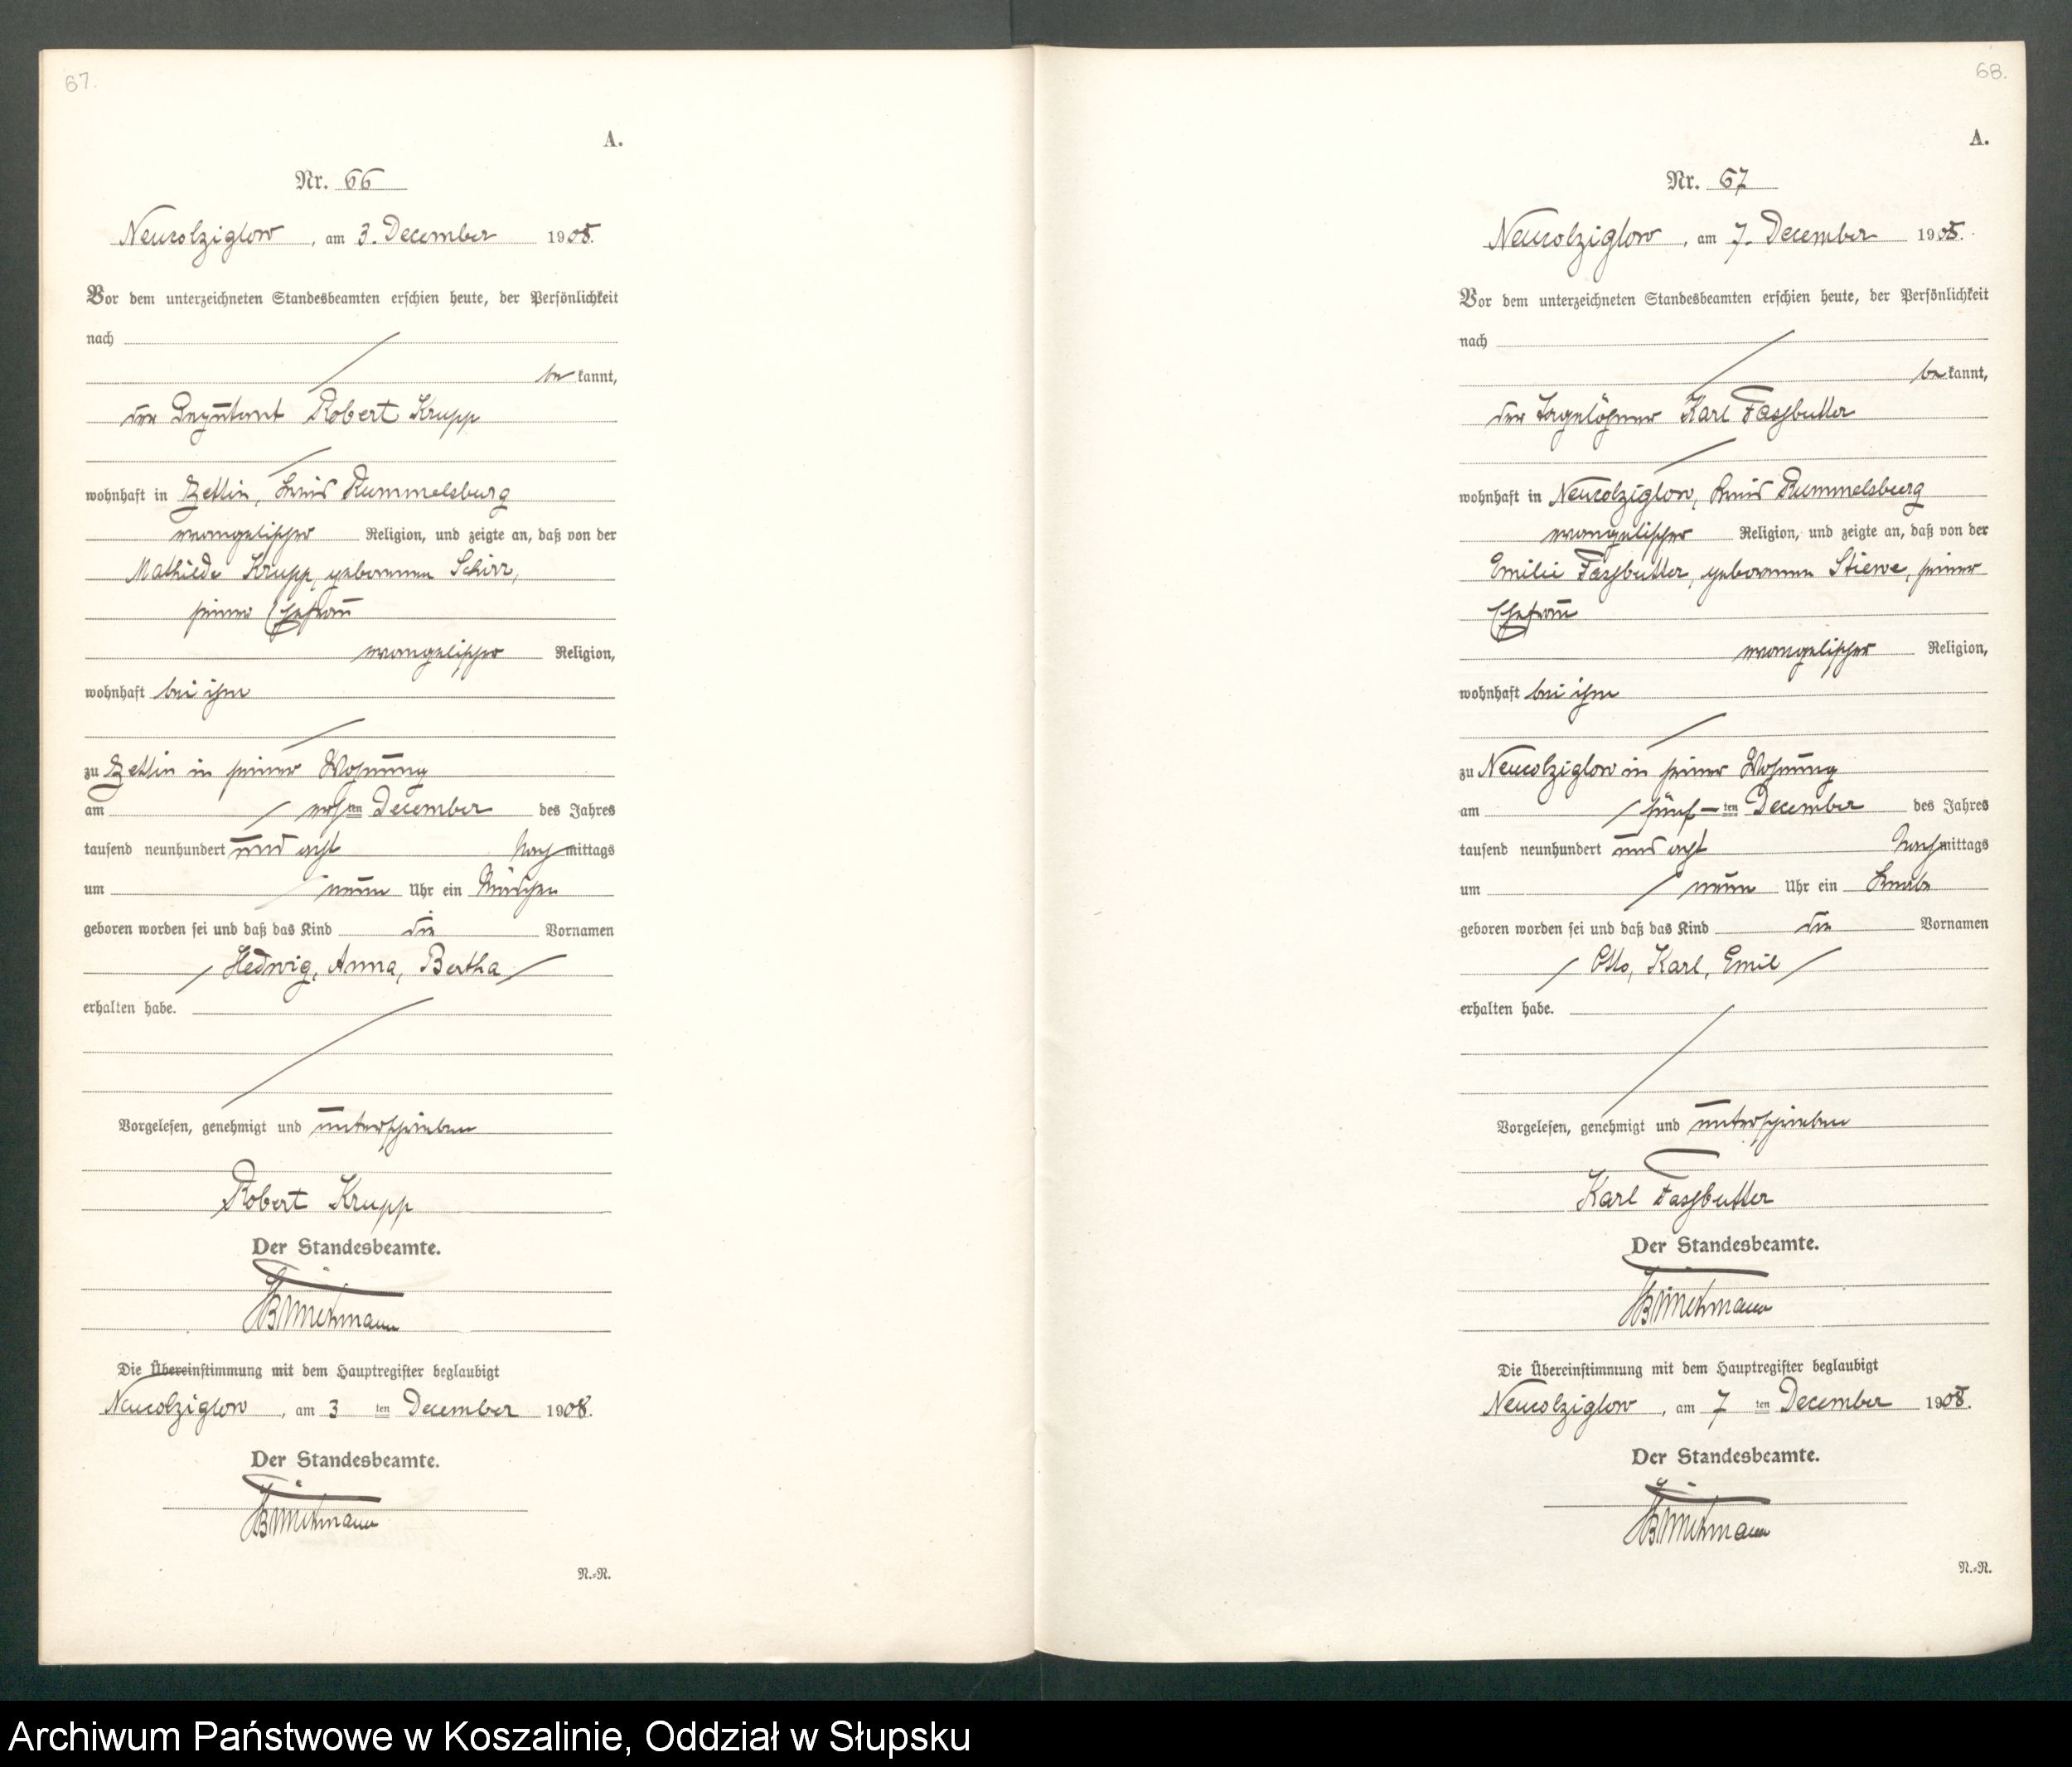 67.
A.
Nr. 66
Neukolziglow, am 3. December 1908.
Vor dem unterzeichneten Standesbeamten erschien heute, der Persönlichkeit
nach
be kannt,
der Deputant Robert Krupp
wohnhaft in Zettin, Kreis Rummelsburg
evangelischer Religion, und zeigte an, daß von der
Mathilde Krupp, geborenen Schirr,
seiner Ehefrau
evangelischer Religion,
wohnhaft bei ihm
zu Zettin in seiner Wohnung
am ersten December des Jahres
tausend neunhundert und acht Nachmittags
um neun Uhr ein Mädchen
geboren worden sei und daß das Kind die Vornamen
Hedwig, Anna, Bertha
erhalten habe.
Vorgelesen, genehmigt und unterschrieben
Robert Krupp
Der Standesbeamte.
Die Übereinstimmung mit dem Hauptregister beglaubigt
Neukolziglow, am 3 ten December 1908.
Der Standesbeamte.
N.=R.
68.
A.
Nr. 67
Neukolziglow, am 7. December 1908.
Vor dem unterzeichneten Standesbeamten erschien heute, der Persönlichkeit
nach
be kannt,
der Tagelöhner Karl Fassbutter
wohnhaft in Neukolziglow, Kreis Rummelsburg
evangelischer Religion, und zeigte an, daß von der
Emilie Fassbutter, geborenen Stiewe, seiner
Ehefrau
evangelischer Religion,
wohnhaft bei ihm
zu Neukolziglow in seiner Wohnung
am fünf-ten December des Jahres
tausend neunhundert und acht Nachmittags
um neun Uhr ein Knabe
geboren worden sei und daß das Kind die Vornamen
Otto, Karl, Emil
erhalten habe.
Vorgelesen, genehmigt und unterschrieben
Karl Fassbutter
Der Standesbeamte.
Die Übereinstimmung mit dem Hauptregister beglaubigt
Neukolziglow, am 7 ten December 1908.
Der Standesbeamte.
N.=R.
Archiwum Państwowe w Koszalinie, Oddział w Słupsku